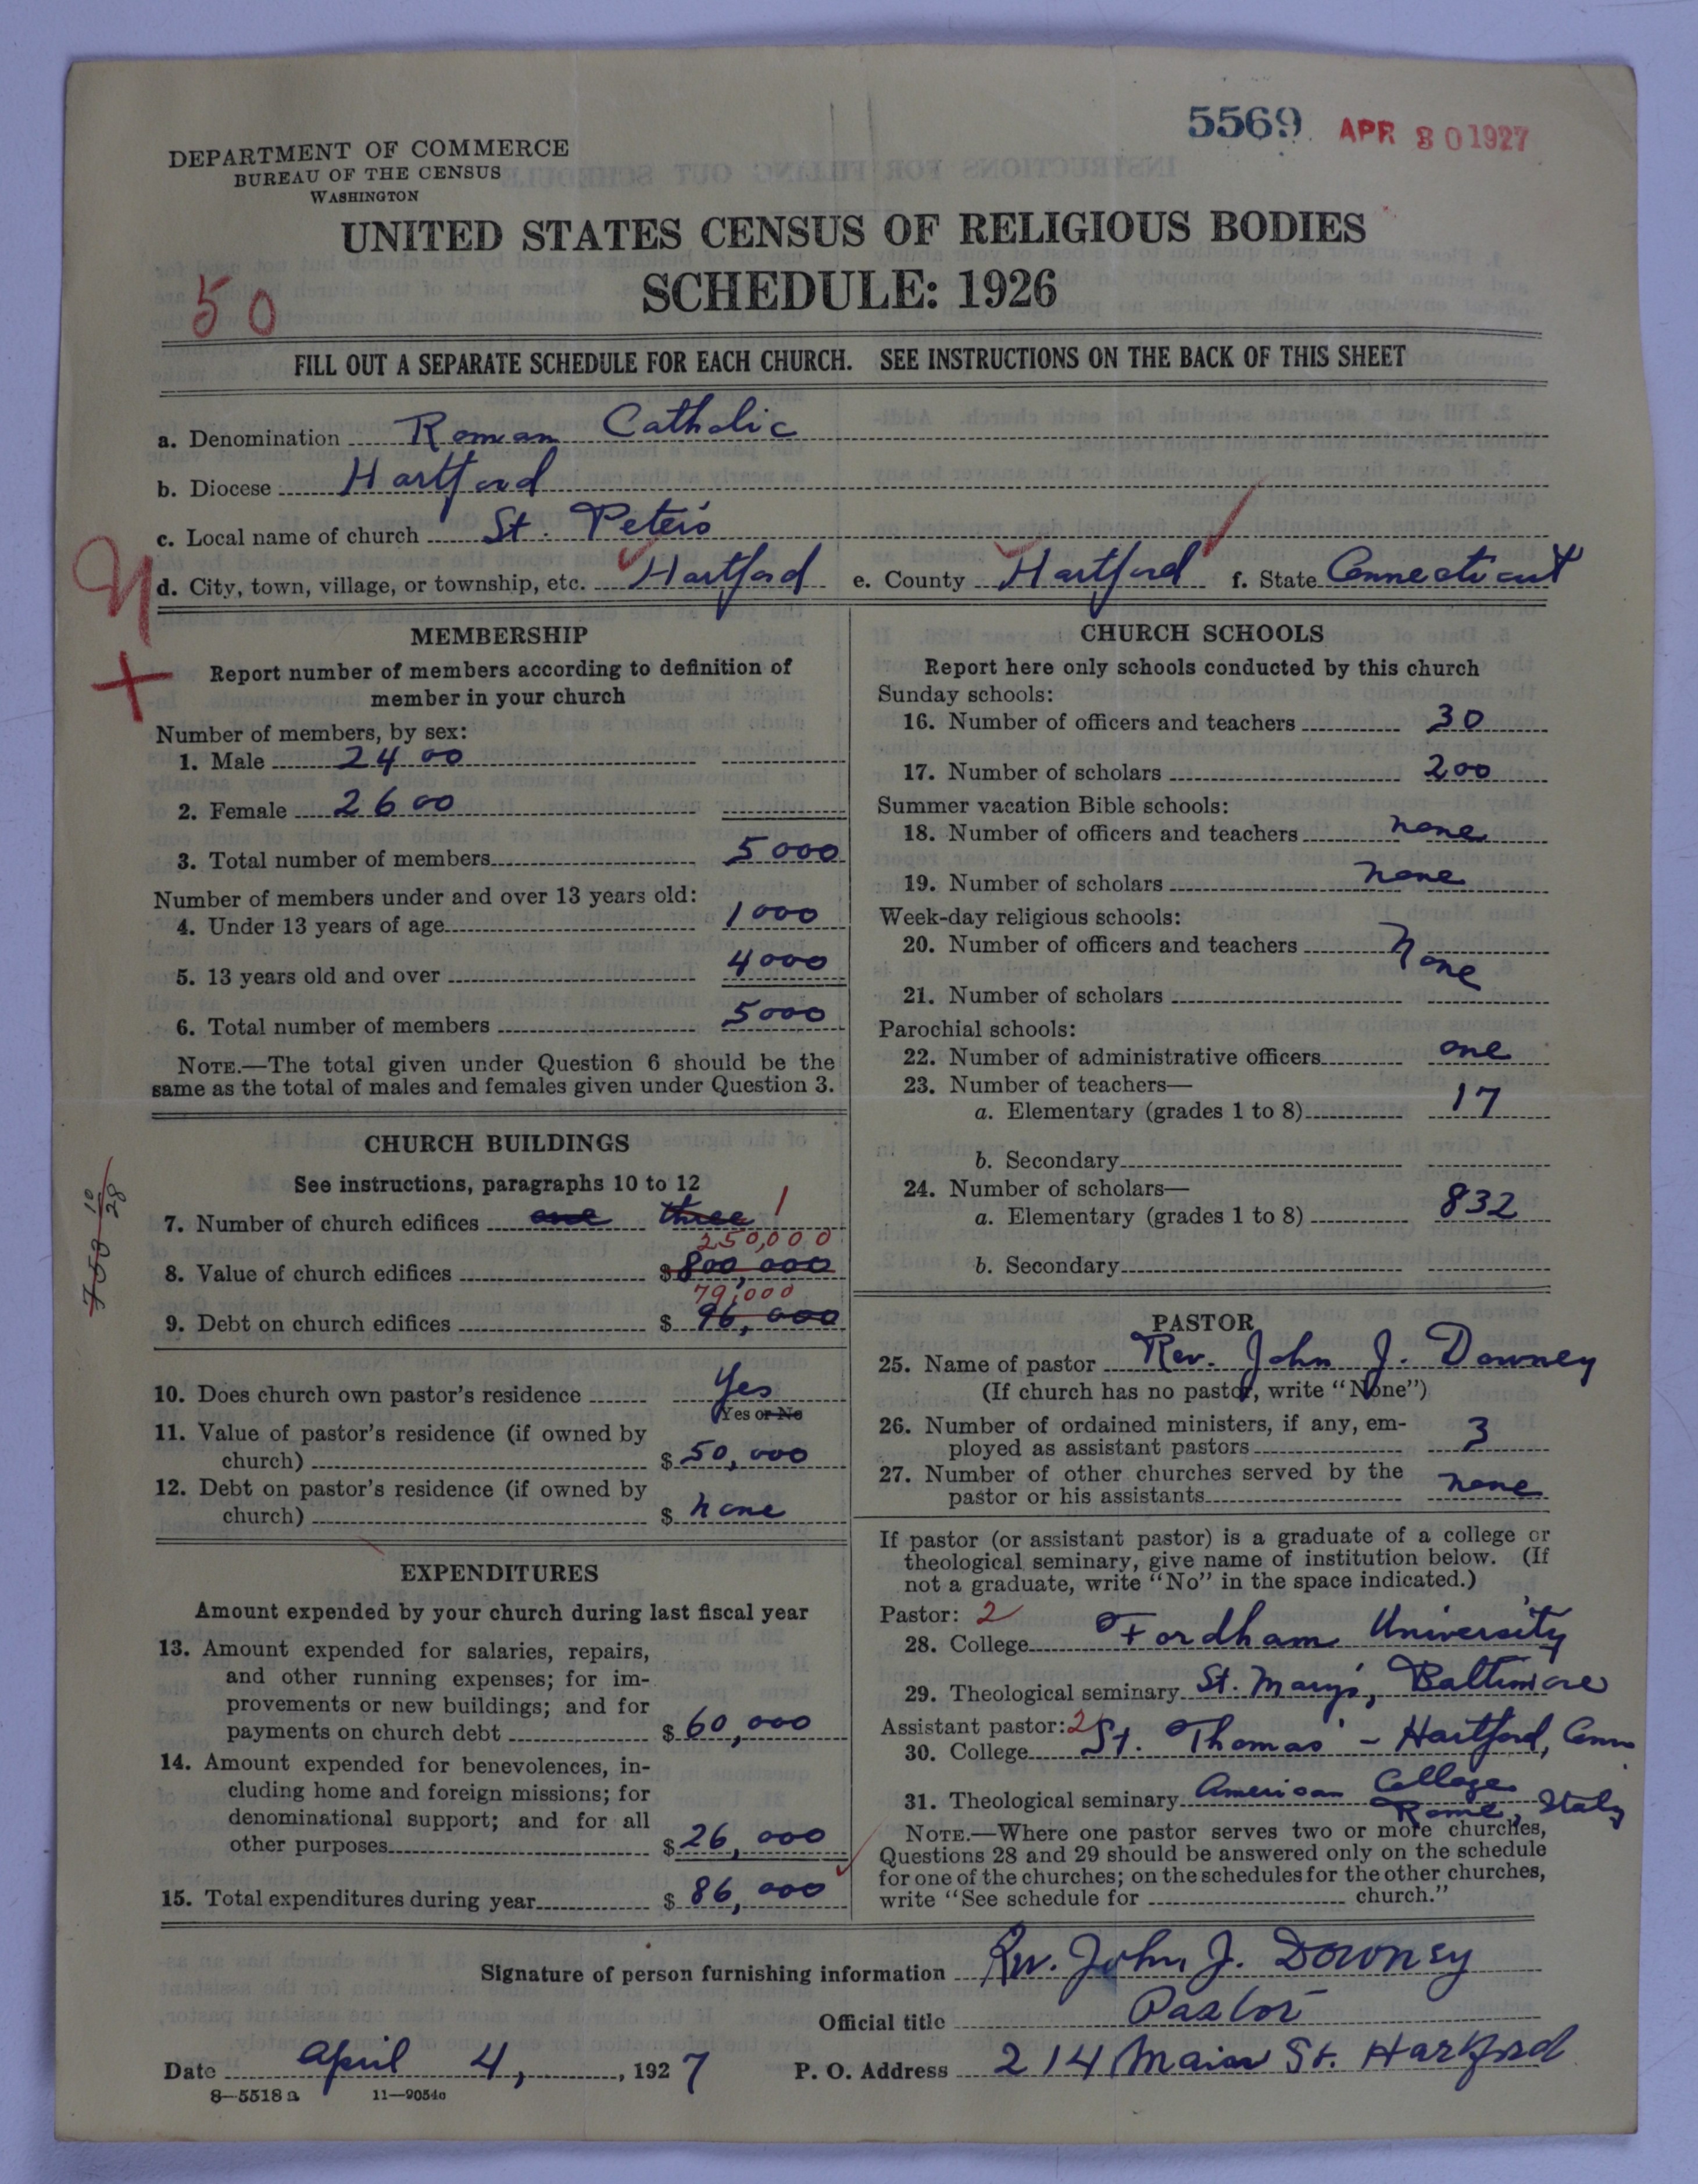 5569 APR 30 1927
DEPARTMENT OF COMMERCE
BUREAU OF THE CENSUS
WASHINGTON
UNITED STATES CENSUS OF RELIGIOUS BODIES
SCHEDULE: 1926
50
FILL OUT A SEPARATE SCHEDULE FOR EACH CHURCH. SEE INSTRUCTIONS ON THE BACK OF THIS SHEET
a. Denomination Roman Catholic
b. Diocese Hartford
c. Local name of church St. Peter's
d. City, town, village, or township, etc. Hartford e. County Hartford f. State Connecticut
MEMBERSHIP
Report number of members according to definition of
member in your church
Number of members, by sex:
1. Male 2400
2. Female 2600
3. Total number of members 5000
Number of members under and over 13 years old:
4. Under 13 years of age 1000
5. 13 years old and over 4000
6. Total number of members 5000
NOTE.—The total given under Question 6 should be the
same as the total of males and females given under Question 3.
CHURCH BUILDINGS
See instructions, paragraphs 10 to 12
7. Number of church edifices one three 1
250,000
8. Value of church edifices $ 800,000
79,000
9. Debt on church edifices $ 96,000
10. Does church own pastor's residence Yes
Yes or No
11. Value of pastor's residence (if owned by
church) $ 50,000
12. Debt on pastor's residence (if owned by
church) $ none
EXPENDITURES
Amount expended by your church during last fiscal year
13. Amount expended for salaries, repairs,
and other running expenses; for im-
provements or new buildings; and for
payments on church debt $ 60,000
14. Amount expended for benevolences, in-
cluding home and foreign missions; for
denominational support; and for all
other purposes $ 26,000
15. Total expenditures during year $ 86,000
CHURCH SCHOOLS
Report here only schools conducted by this church
Sunday schools:
16. Number of officers and teachers 30
17. Number of scholars 200
Summer vacation Bible schools:
18. Number of officers and teachers none
19. Number of scholars none
Week-day religious schools:
20. Number of officers and teachers None
21. Number of scholars
Parochial schools:
22. Number of administrative officers one
23. Number of teachers—
a. Elementary (grades 1 to 8) 17
b. Secondary
24. Number of scholars—
a. Elementary (grades 1 to 8) 832
b. Secondary
PASTOR
25. Name of pastor Rev. John J. Downey
(If church has no pastor, write "None")
26. Number of ordained ministers, if any, em-
ployed as assistant pastors 3
27. Number of other churches served by the
pastor or his assistants none
If pastor (or assistant pastor) is a graduate of a college or
theological seminary, give name of institution below. (If
not a graduate, write "No" in the space indicated.)
Pastor: 2
28. College Fordham University
29. Theological seminary St. Mary's, Baltimore
Assistant pastor: 2
30. College St. Thomas' - Hartford, Conn
31. Theological seminary American College
Rome, Italy
NOTE.—Where one pastor serves two or more churches,
Questions 28 and 29 should be answered only on the schedule
for one of the churches; on the schedules for the other churches,
write "See schedule for church."
Signature of person furnishing information Rev. John J. Downey
Official title Pastor
Date April 4, , 1927 P. O. Address 214 Main St. Hartford
8—5518 a 11—9054a